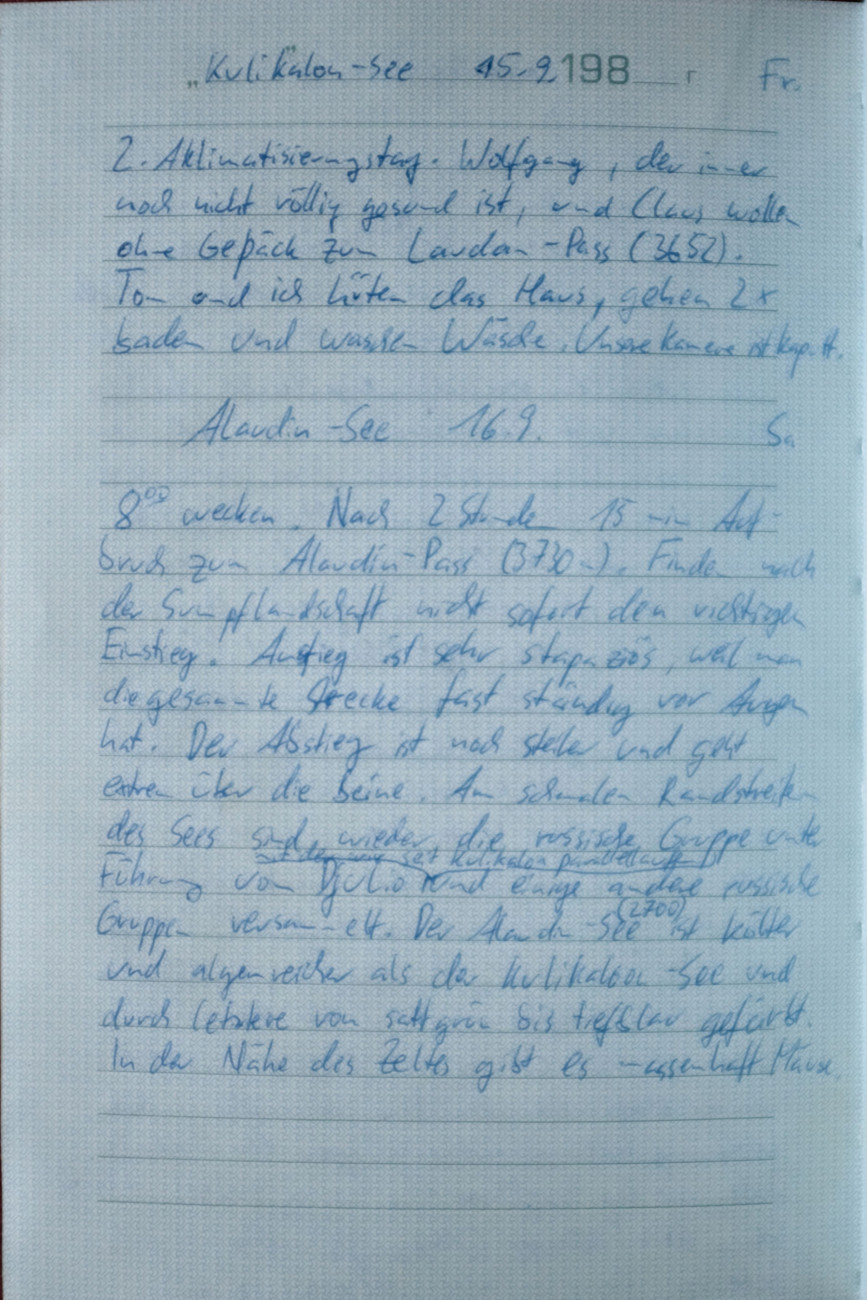 „Kulikalon-See 15.9.198__r Fr.
2. Aklimatisierungstag. Wolfgang, der immer
noch nicht völlig gesund ist, und Claus wollen
ohne Gepäck zum Laudan-Pass (3652).
Tom und ich hüten das Haus, gehen 2x
baden und waschen Wäsche. Unsere Kamera ist kaputt.
Alaudin-See 16.9. Sa
8⁰⁰ wecken. Nach 2 Stunden 15 min Auf-
bruch zum Alaudin-Pass (3730m). Finden nach
der Sumpflandschaft nicht sofort den richtigen
Einstieg. Aufstieg ist sehr stapaziös, weil man
die gesammte Strecke fast ständig vor Augen
hat. Der Abstieg ist noch steiler und geht
extrem über die Beine. Am schmalen Randstreifen
des Sees sind wieder die russische Gruppe unter
mit der wir seit Kulikalon parallel
Führung von Djulio und einige andere russische
Gruppen versammelt. Der Alaudin-See (2700) ist kälter
und algenreicher als der Kulikalon-See und
durch letztere von sattgrün bis tiefblau gefärbt.
In der Nähe des Zeltes gibt es massenhaft Mäuse.